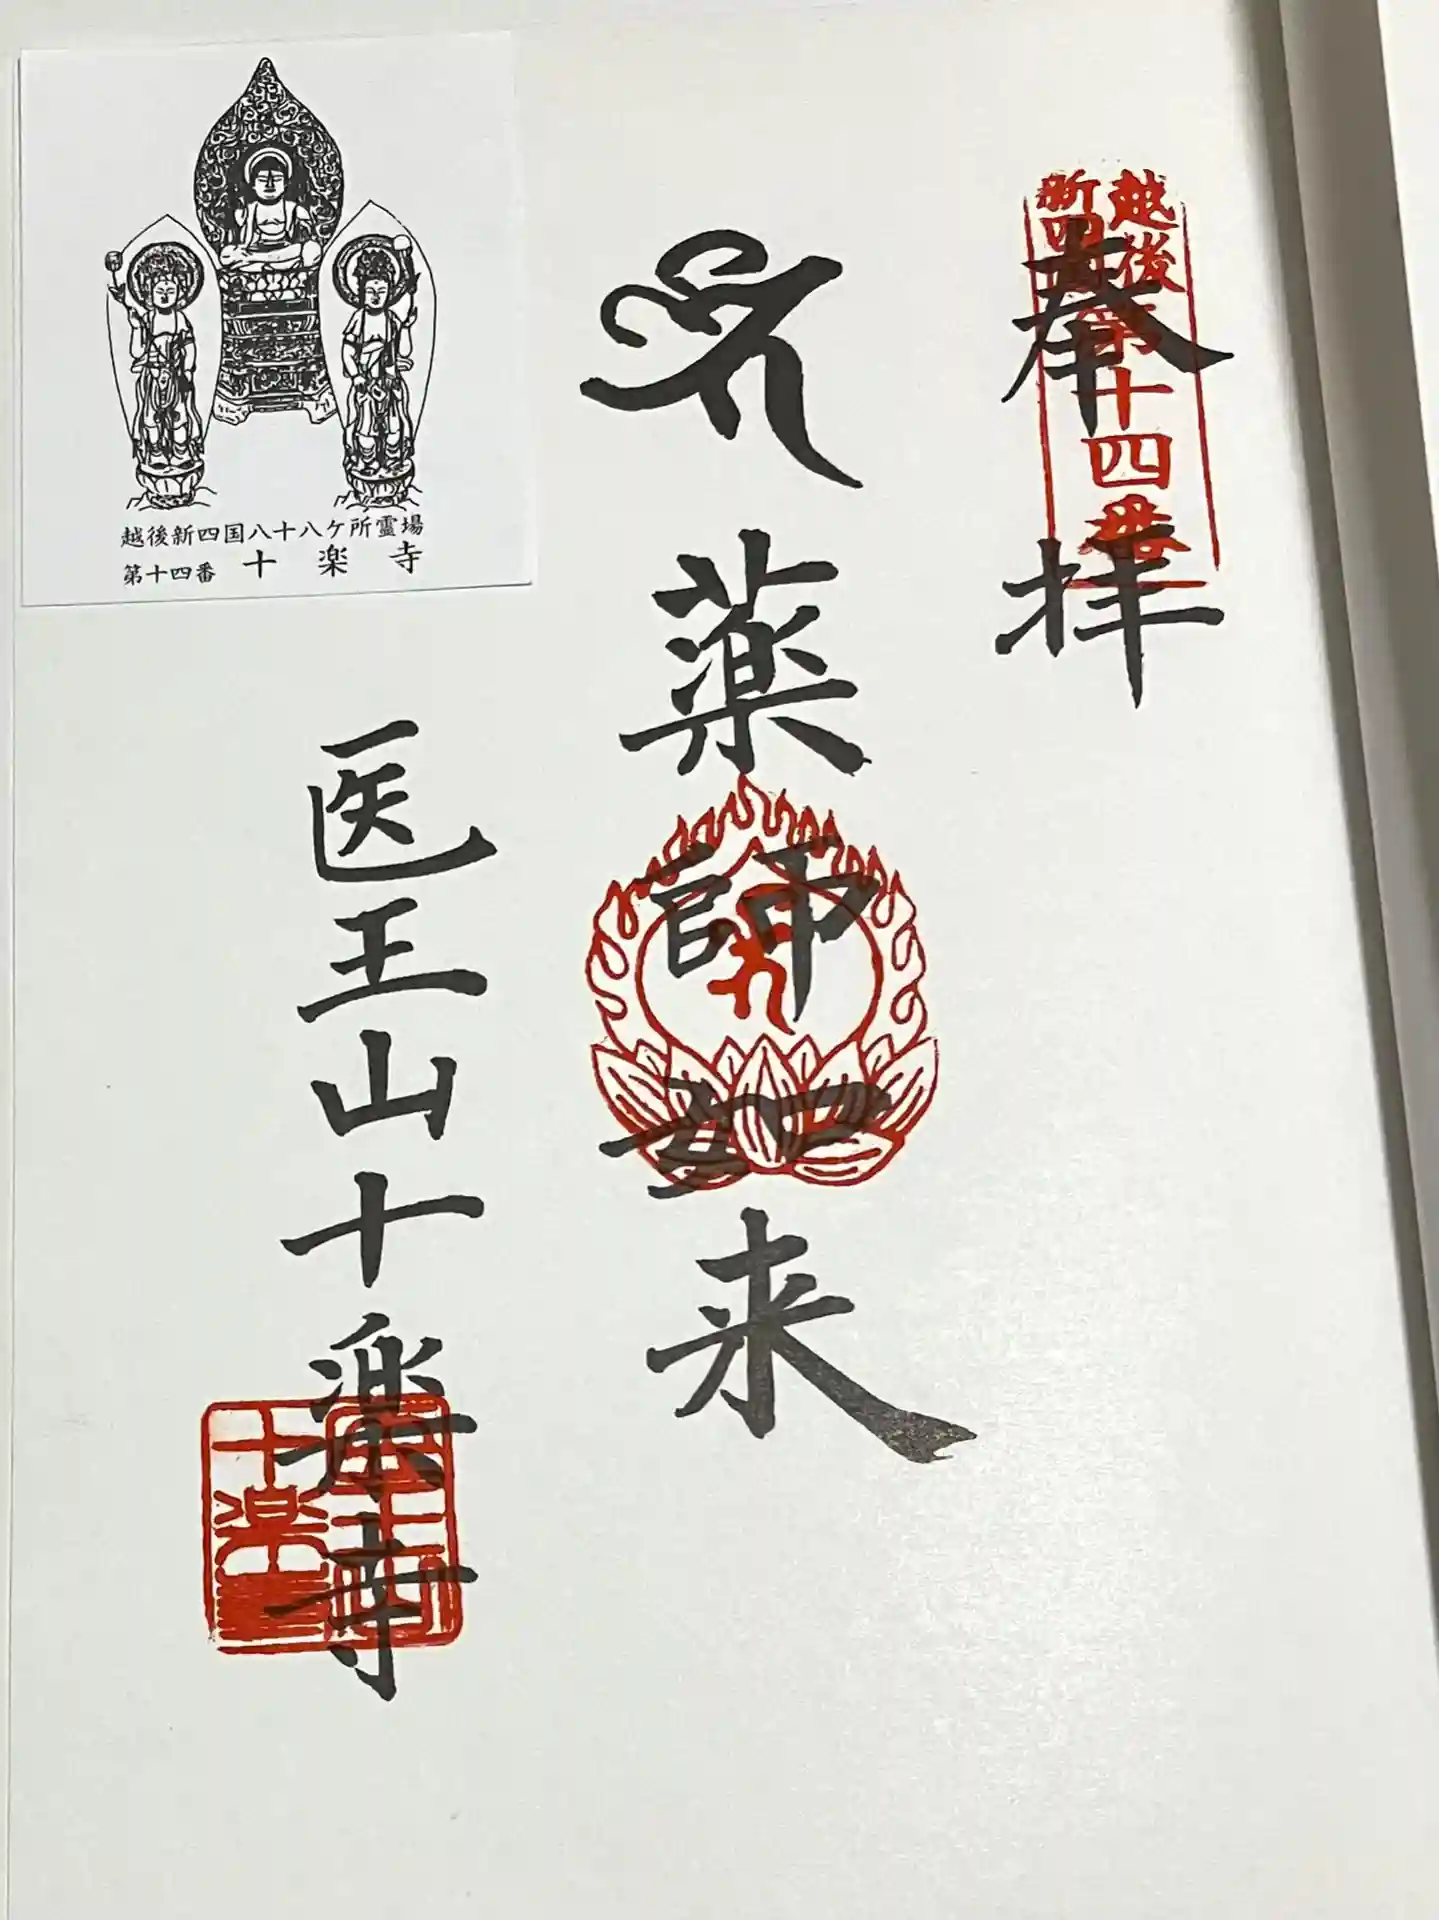 奉拝
越後
新四国
第十四番
薬師如来
医王山十楽寺
十楽
越後新四国八十八ケ所霊場
第十四番 十楽寺